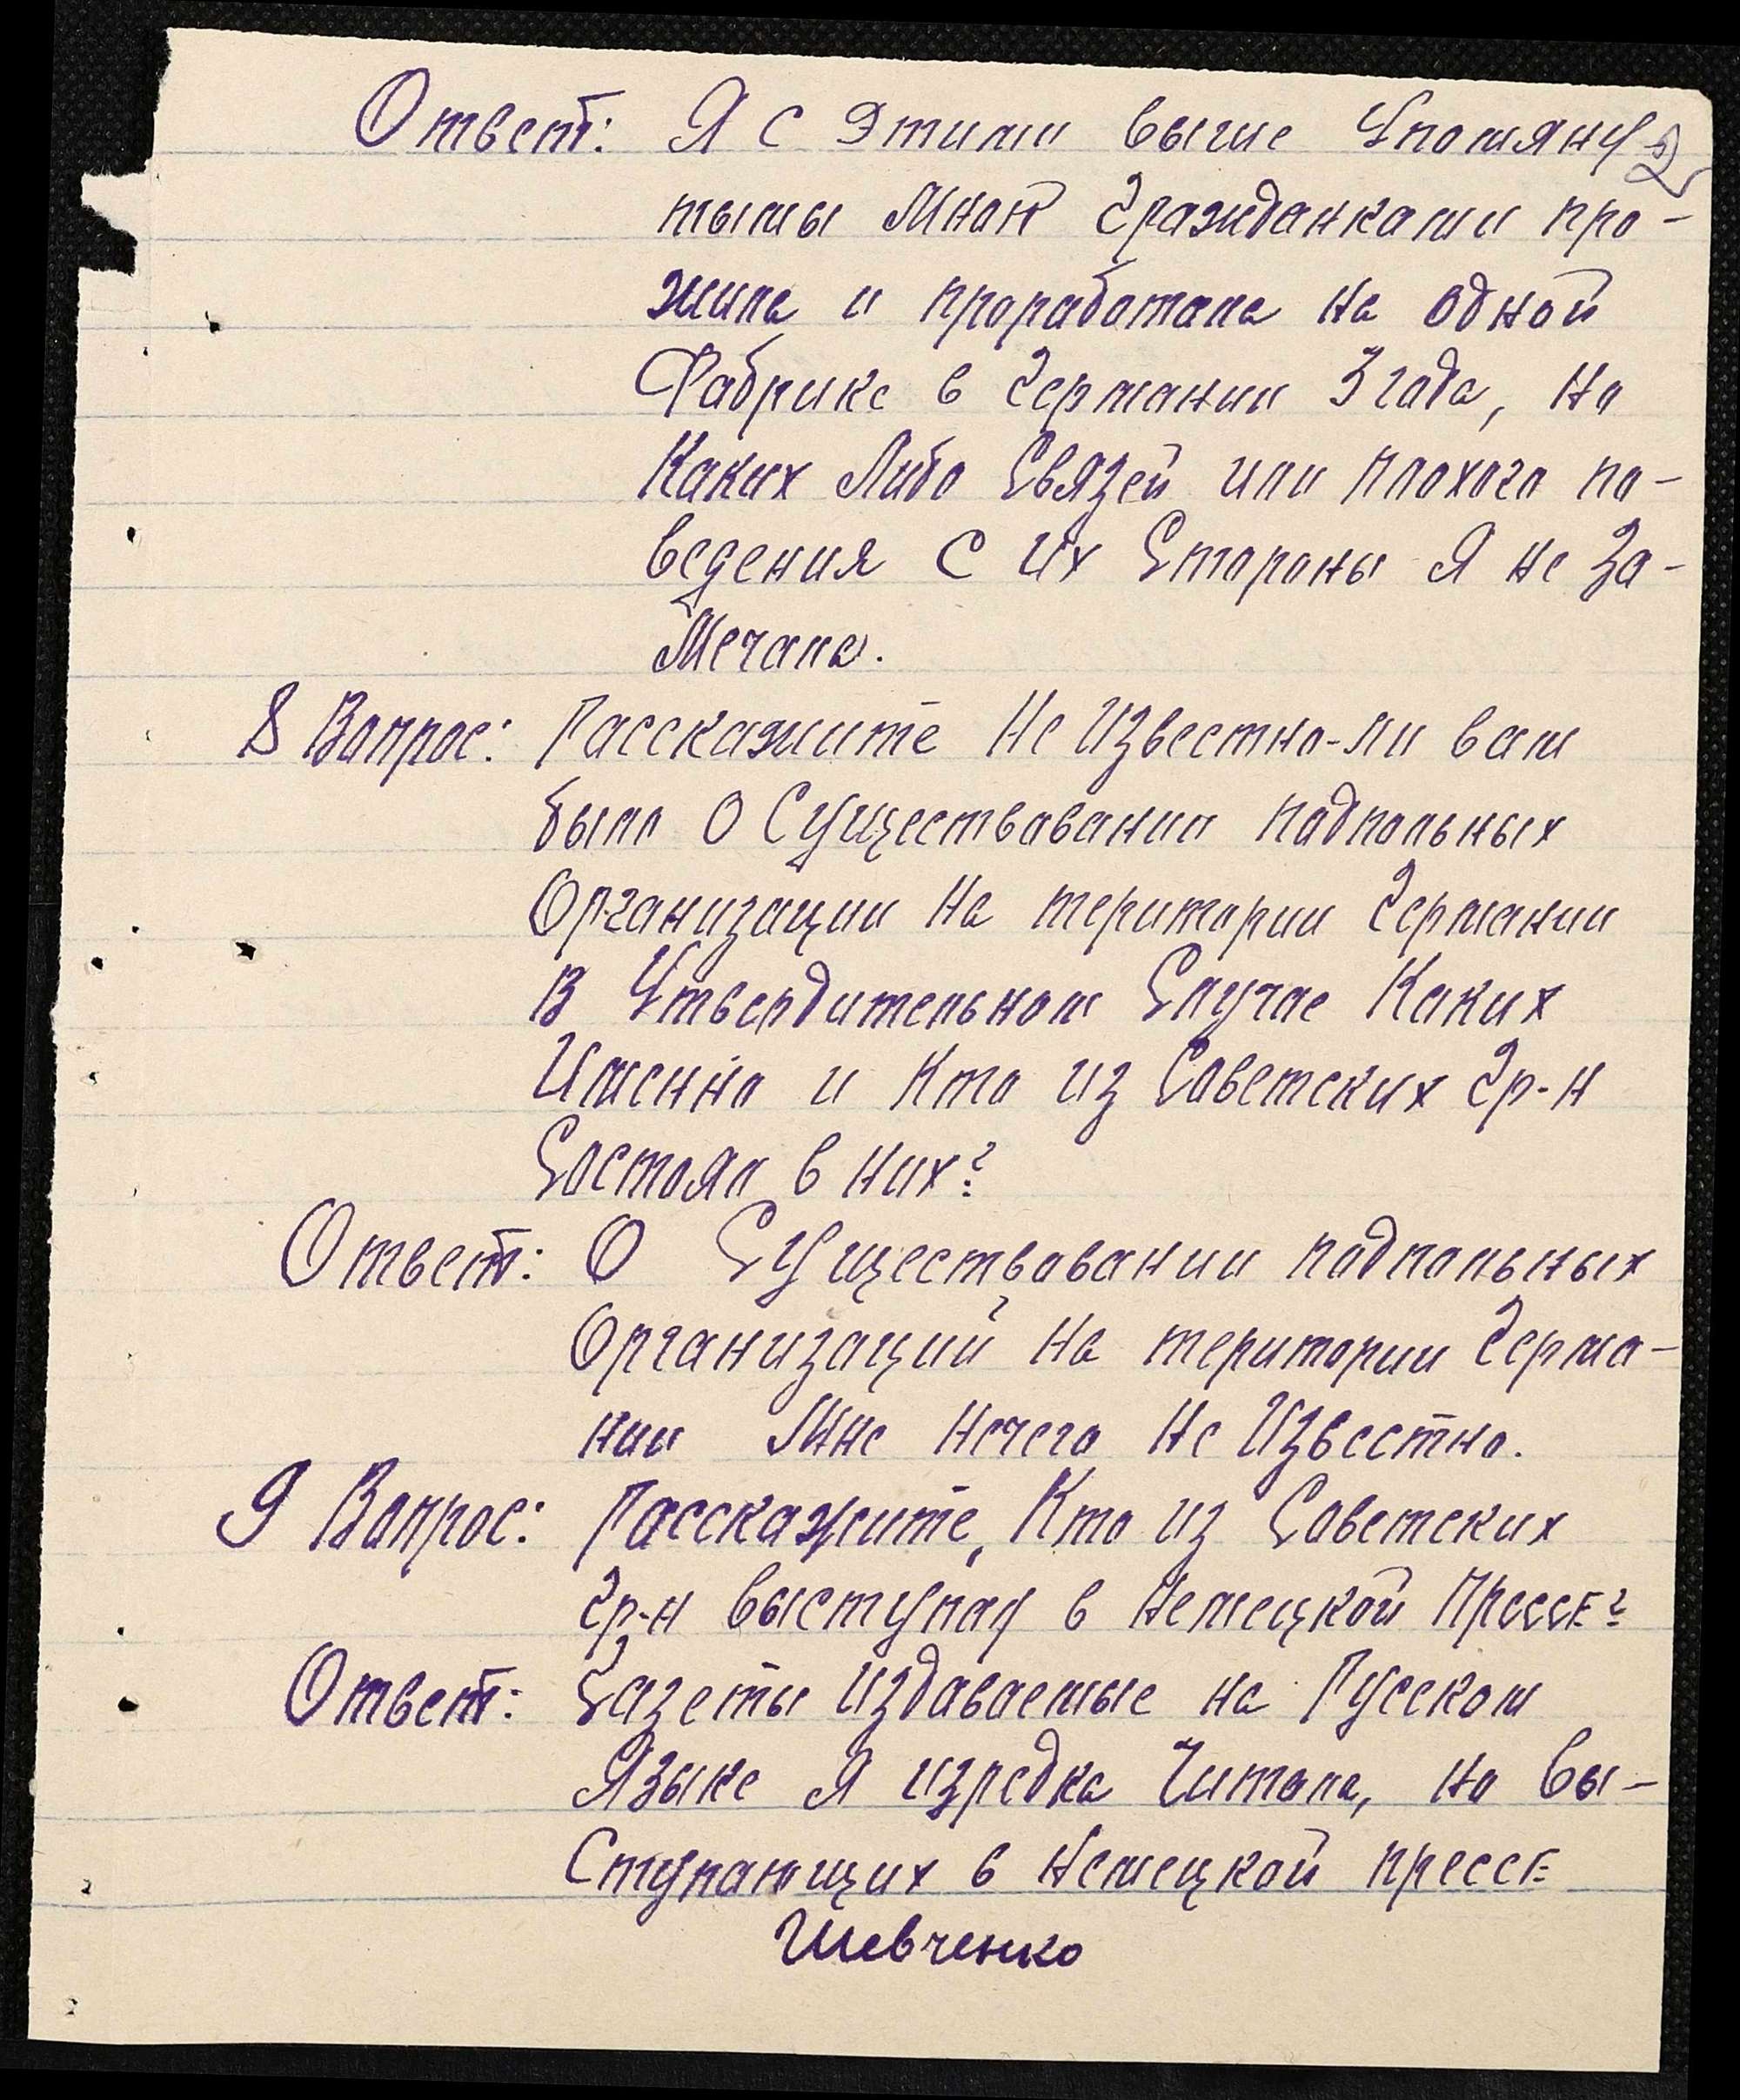 Ответ: Я с Этими выше Упомяну
тымы Мной Гражданками про-
жила и проработала на одной
Фабрике в Германии 3 года, но
Каких Либо Связей или плохого по-
ведения С Их Стороны Я не За-
Мечала.
8 Вопрос: Расскажите Не Известно-ли вам
было О Существовании подпольных
Организации На територии Германии
В Утвердительном Случае Каких
Именно и Кто из Советских Гр-н
Состоял в них?
Ответ: О Существовании подпольных
Организаций на територии Герма-
нии Мне Нечего Не Известно.
9 Вопрос: Расскажите, Кто из Советских
Гр-н выступал в Немецкой Прессе?
Ответ: Газеты Издаваемые на Русском
Языке Я изредка Читала, но Вы-
Ступающих в Немецкой прессе
Шевченко